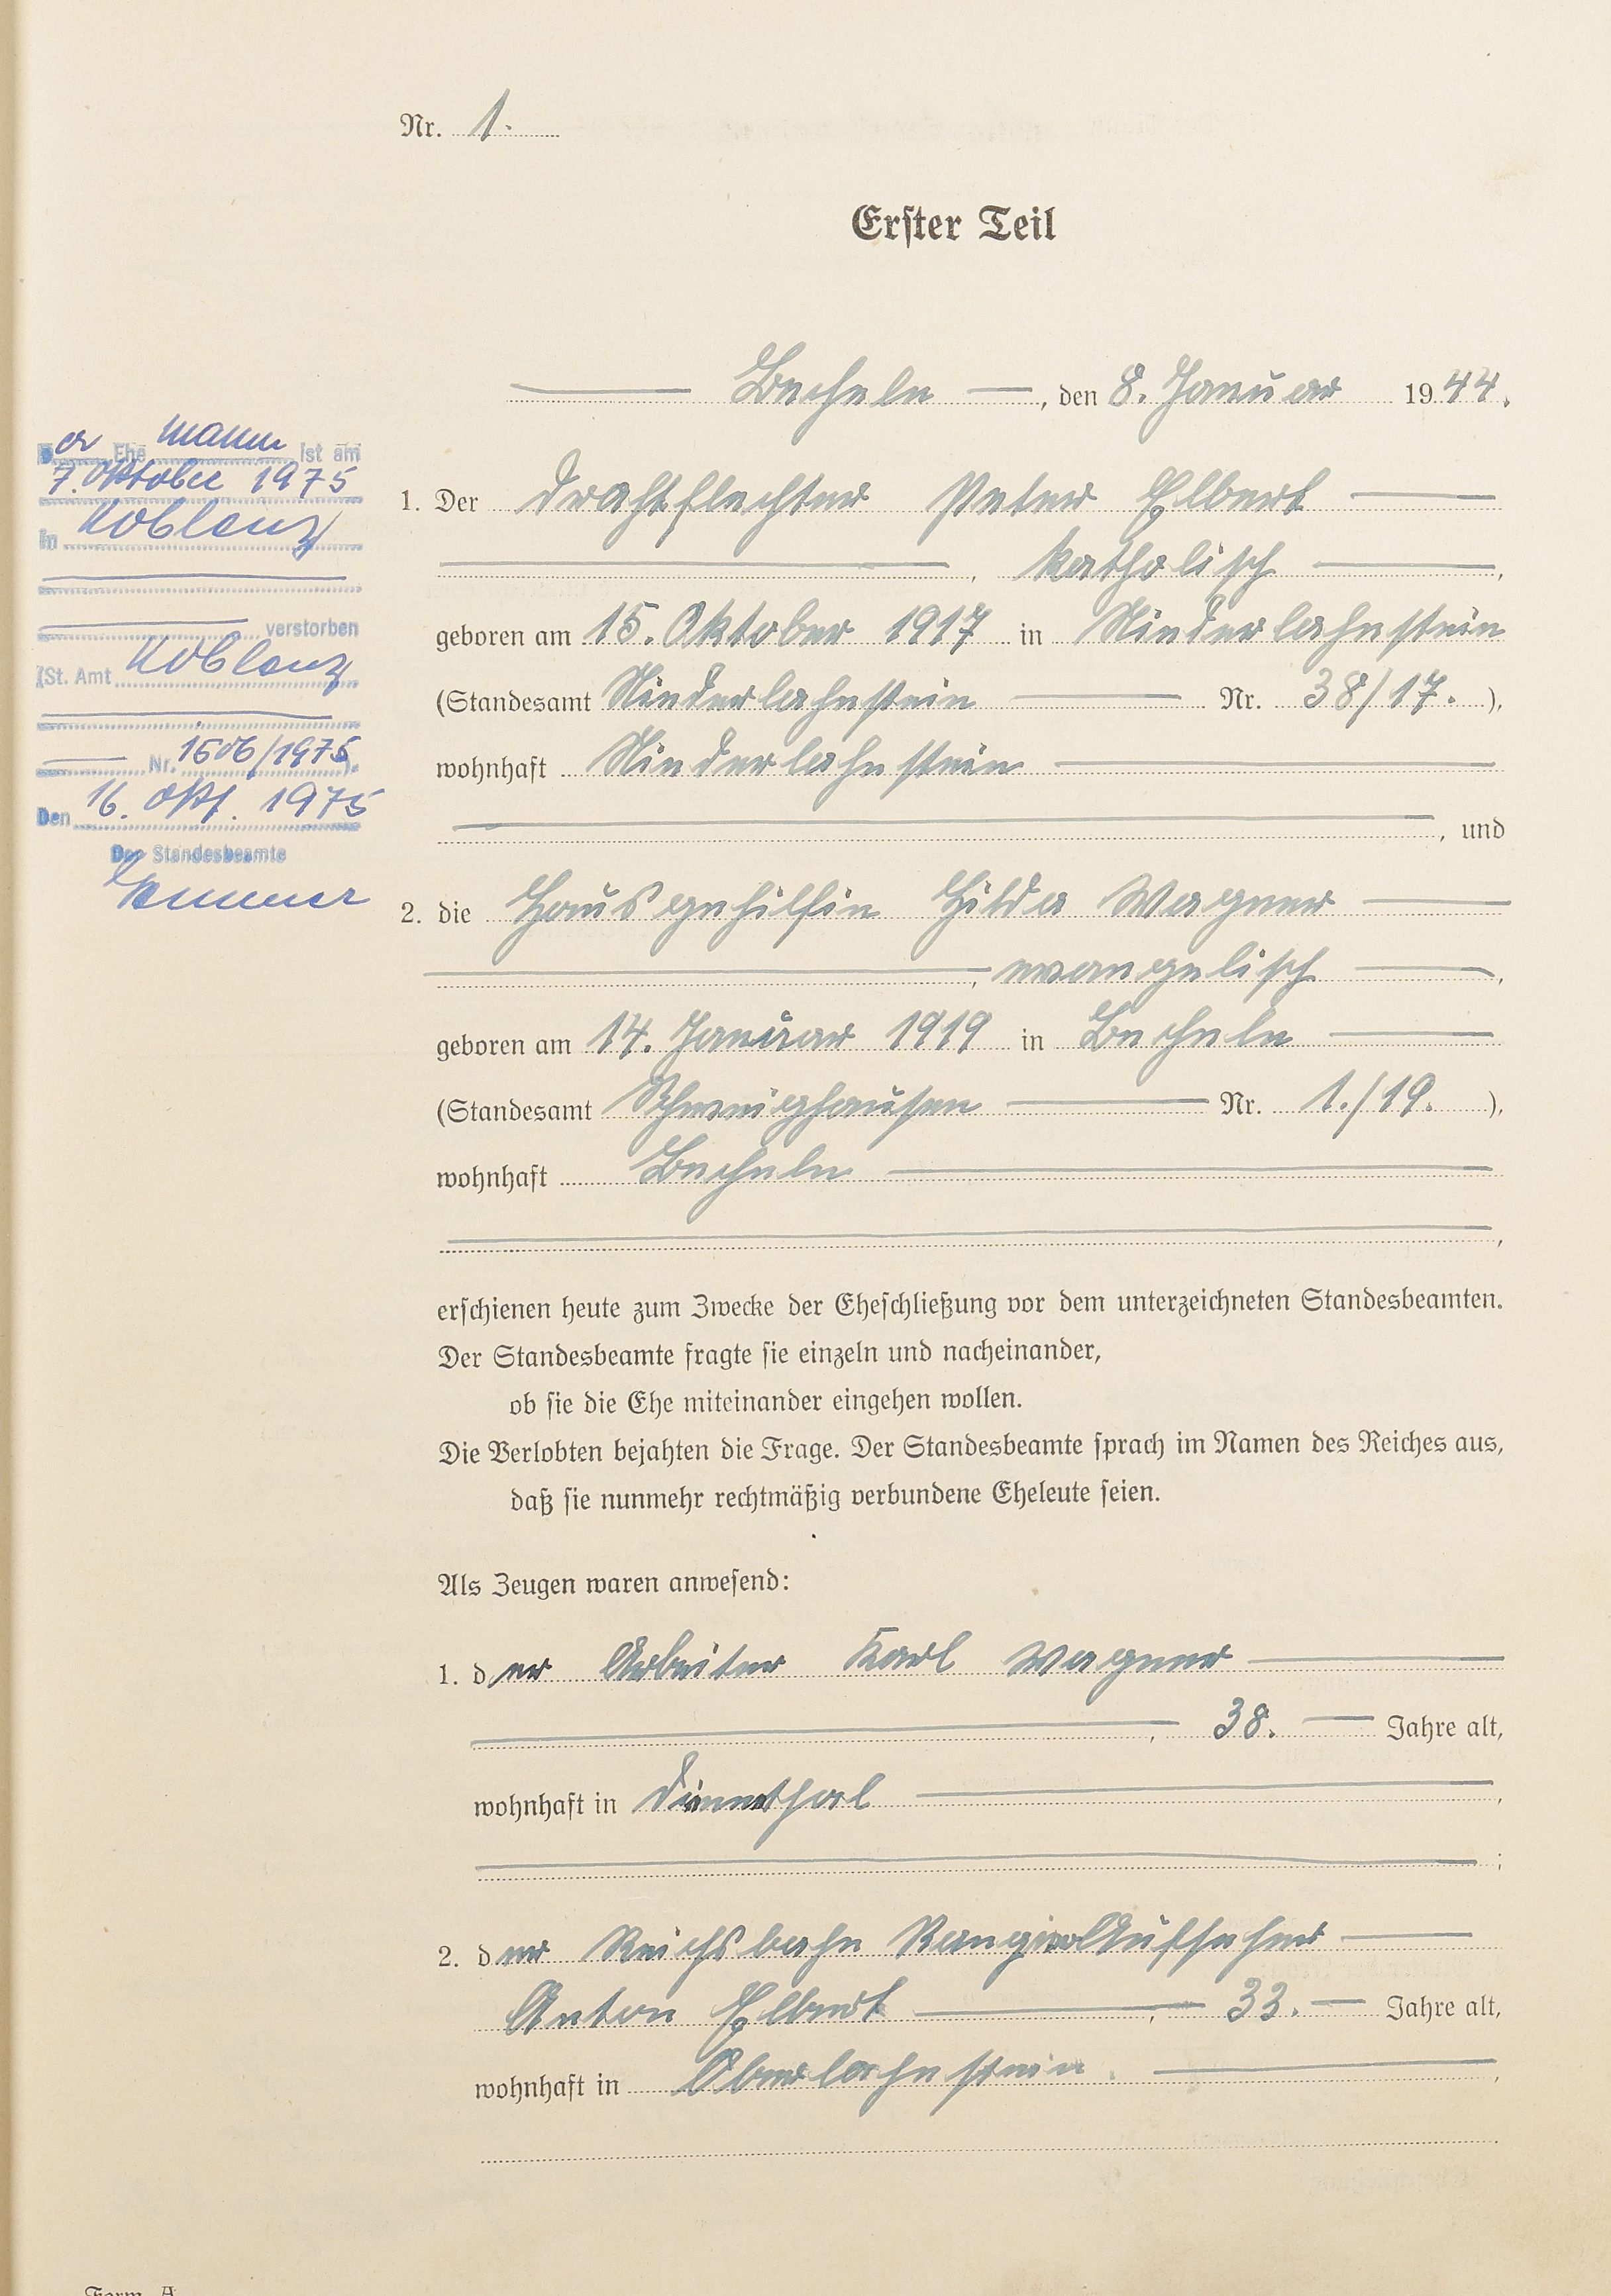 Nr. 1.
Erster Teil
Becheln, den 8. Januar 1944.
1. Der Drahtflechter Peter Elbert
, katholisch,
geboren am 15. Oktober 1917 in Niederlahnstein
(Standesamt Niederlahnstein Nr. 38/17.),
wohnhaft Niederlahnstein
, und
2. die Hausgehilfin Hilda Wagner
, evangelisch,
geboren am 14. Januar 1919 in Becheln
(Standesamt Schweighausen Nr. 1./19.),
wohnhaft Becheln
,
erschienen heute zum Zwecke der Eheschließung vor dem unterzeichneten Standesbeamten.
Der Standesbeamte fragte sie einzeln und nacheinander,
ob sie die Ehe miteinander eingehen wollen.
Die Verlobten bejahten die Frage. Der Standesbeamte sprach im Namen des Reiches aus,
daß sie nunmehr rechtmäßig verbundene Eheleute seien.
Als Zeugen waren anwesend:
1. der Arbeiter Karl Wagner
, 38. Jahre alt,
wohnhaft in Dienethal,
;
2. der Reichsbahn RangierAufseher
Anton Elbert, 33. Jahre alt,
wohnhaft in Oberlahnstein.,
Der Ehemann ist am
7. Oktober 1975
in Koblenz
verstorben
(St. Amt Koblenz
Nr. 1506/1975).
Den 16. Okt. 1975
Der Standesbeamte
Form. A